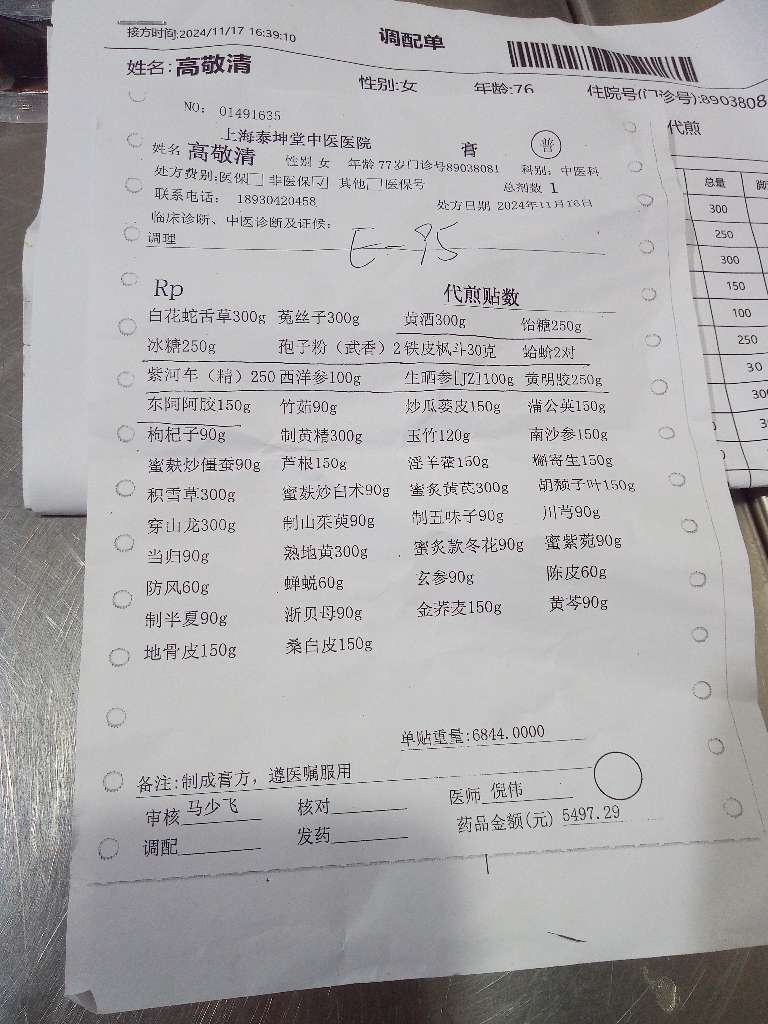 接方时间:2024/11/17 16:39:10
调配单
姓名:高敬清 性别:女 年龄:76 住院号(门诊号):89038081
代煎
NO: 01491635
上海泰坤堂中医医院 膏 普
姓名 高敬清 性别 女 年龄 77岁 门诊号89038081 科别: 中医科
处方费别:医保□ 非医保☑ 其他□医保号 总剂数 1
联系电话: 18930420458 处方日期 2024年11月16日
临床诊断、中医诊断及证候:
调理
E-95
Rp 代煎贴数
白花蛇舌草300g 菟丝子300g 黄酒300g 饴糖250g
冰糖250g 孢子粉（武香）2 铁皮枫斗30克 蛤蚧2对
紫河车（精）250 西洋参100g 生晒参[JZ]100g 黄明胶250g
东阿阿胶150g 竹茹90g 炒瓜蒌皮150g 蒲公英150g
枸杞子90g 制黄精300g 玉竹120g 南沙参150g
蜜麸炒僵蚕90g 芦根150g 淫羊藿150g 槲寄生150g
积雪草300g 蜜麸炒白术90g 蜜炙黄芪300g 胡颓子叶150g
穿山龙300g 制山茱萸90g 制五味子90g 川芎90g
当归90g 熟地黄300g 蜜炙款冬花90g 蜜紫菀90g
防风60g 蝉蜕60g 玄参90g 陈皮60g
制半夏90g 浙贝母90g 金荞麦150g 黄芩90g
地骨皮150g 桑白皮150g
单贴重量:6844.0000
备注:制成膏方, 遵医嘱服用
审核 马少飞 核对 医师 倪伟
调配 发药 药品金额(元) 5497.29
总量
300
250
300
150
100
250
30